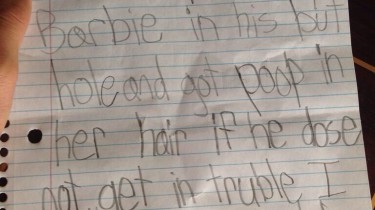 Barbie in his but
hole and got poop in
her hair if he dose
not get in truble I